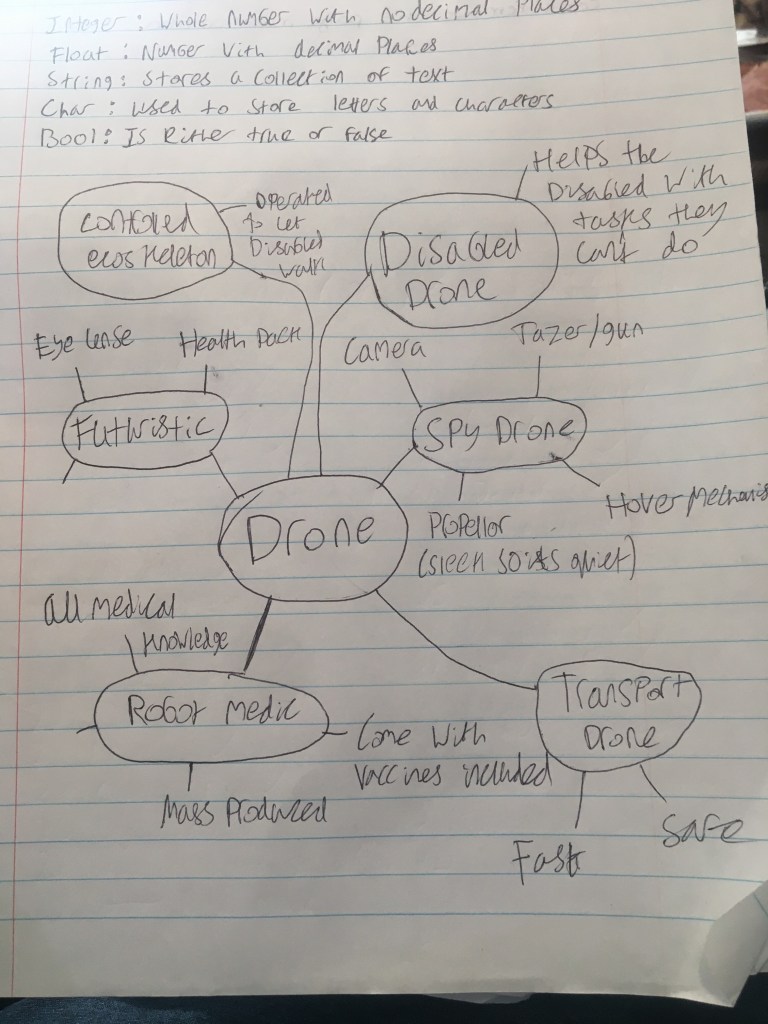 Integer: Whole number with no decimal places
Float: Number with decimal places
String: Stores a collection of text
Char: Used to store letters and characters
Bool: Is Either true or false
ecoskeleton
operated
to let
Disabled
walk
Helps the
Disabled with
tasks they
can't do
Disabled
Drone
Eye lense
Health Pack
Futuristic
Camera
Tazer/gun
Spy Drone
Hover Mechanis
Propellor
(sleek so its quiet)
Drone
All medical
knowledge
Robot medic
Come with
vaccines included
Mass Produced
Transport
Drone
Fast
Safe